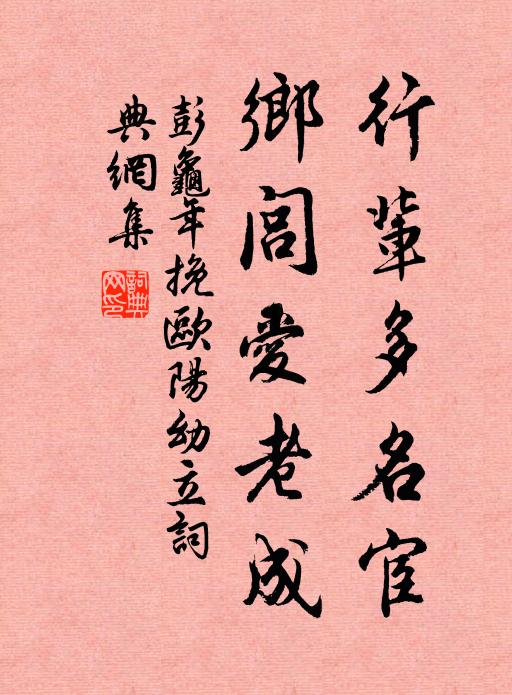 行輩多名宦
鄉閭愛老成
彭龜年挽歐陽幼立詞
典網集
詞典網印